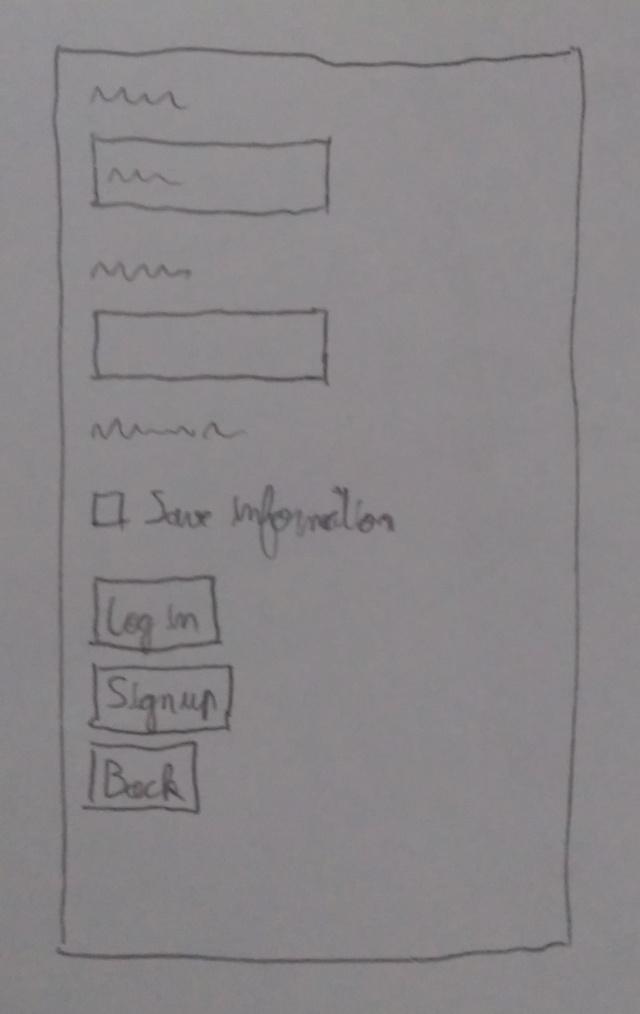 Save information
Log In
Signup
Back